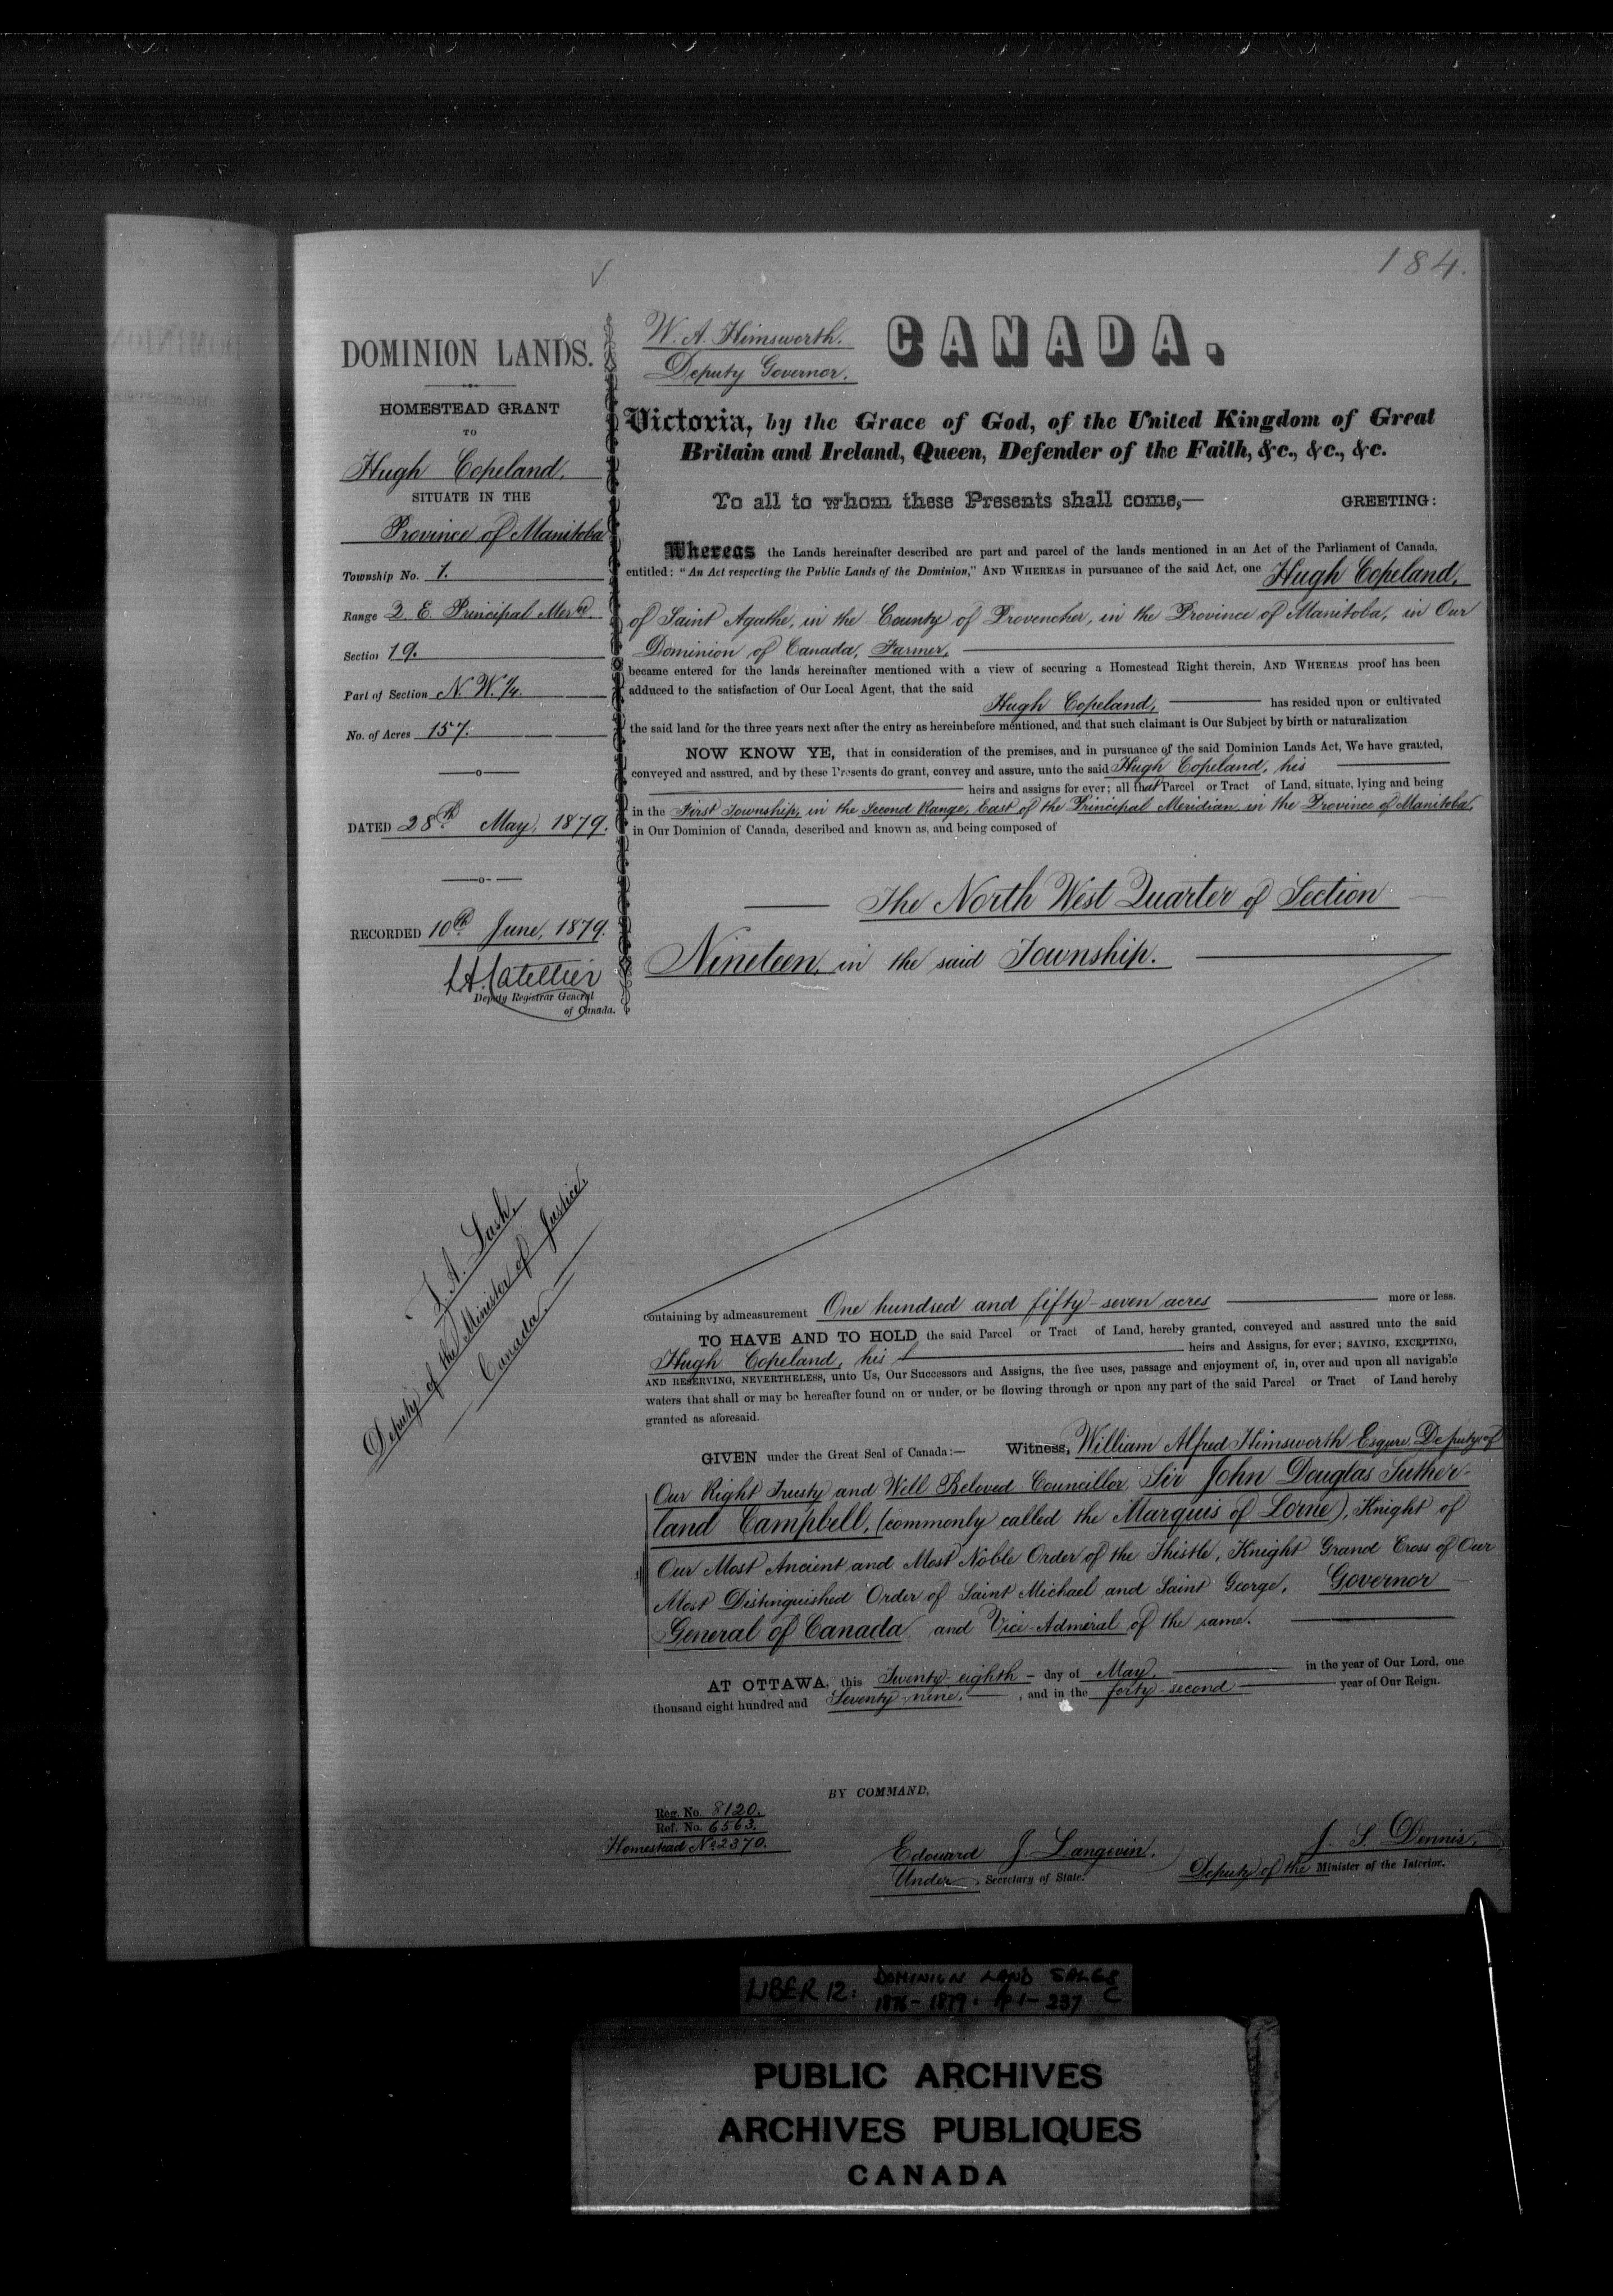 184.
DOMINION LANDS.
HOMESTEAD GRANT
TO
Hugh Copeland.
SITUATE IN THE
Province of Manitoba
Township No. 1.
Range 2. E. Principal Merd.
Section 19.
Part of Section N. W. 1/4.
No. of Acres 157.
DATED 28th May, 1879.
RECORDED 10th June, 1879.
Deputy Registrar General
of Canada.
W. A. Himsworth.
Deputy Governor.
CANADA.
Victoria, by the Grace of God, of the United Kingdom of Great
Britain and Ireland, Queen, Defender of the Faith, &c., &c., &c.
To all to whom these Presents shall come,— GREETING:
Whereas the Lands hereinafter described are part and parcel of the lands mentioned in an Act of the Parliament of Canada,
entitled: "An Act respecting the Public Lands of the Dominion," AND WHEREAS in pursuance of the said Act, one Hugh Copeland,
of Saint Agathe, in the County of Provencher, in the Province of Manitoba, in Our
Dominion of Canada, Farmer,
became entered for the lands hereinafter mentioned with a view of securing a Homestead Right therein, AND WHEREAS proof has been
adduced to the satisfaction of Our Local Agent, that the said
Hugh Copeland, has resided upon or cultivated
the said land for the three years next after the entry as hereinbefore mentioned, and that such claimant is Our Subject by birth or naturalization
NOW KNOW YE, that in consideration of the premises, and in pursuance of the said Dominion Lands Act, We have granted,
conveyed and assured, and by these Presents do grant, convey and assure, unto the said Hugh Copeland, his
heirs and assigns for ever; all that Parcel or Tract of Land, situate, lying and being
in the First Township, in the Second Range, East of the Principal Meridian, in the Province of Manitoba,
in Our Dominion of Canada, described and known as, and being composed of
The North West Quarter of Section
Nineteen, in the said Township.
J. A. Lash,
Deputy of the Minister of Justice.
Canada.
containing by admeasurement One hundred and fifty-seven acres more or less.
TO HAVE AND TO HOLD the said Parcel or Tract of Land, hereby granted, conveyed and assured unto the said
Hugh Copeland, his heirs and Assigns, for ever; SAVING, EXCEPTING,
AND RESERVING, NEVERTHELESS, unto Us, Our Successors and Assigns, the free uses, passage and enjoyment of, in, over and upon all navigable
waters that shall or may be hereafter found on or under, or be flowing through or upon any part of the said Parcel or Tract of Land hereby
granted as aforesaid.
GIVEN under the Great Seal of Canada:— Witness, William Alfred Himsworth Esquire, Deputy of
Our Right Trusty and Well Beloved Councillor, Sir John Douglas Suther-
land Campbell, (commonly called the Marquis of Lorne), Knight of
Our Most Ancient and Most Noble Order of the Thistle, Knight Grand Cross of Our
Most Distinguished Order of Saint Michael and Saint George, Governor
General of Canada, and Vice-Admiral of the same.
AT OTTAWA, this Twenty-eighth day of May, in the year of Our Lord, one
thousand eight hundred and Seventy-nine, and in the forty-second year of Our Reign.
BY COMMAND,
Reg. No. 8120.
Ref. No. 6563.
Homestead No 2370.
Edouard J. Langevin,
Under Secretary of State.
J. S. Dennis,
Deputy of the Minister of the Interior.
LIBER 12: DOMINION LAND SALES
1876-1879. pp 1-237 C
PUBLIC ARCHIVES
ARCHIVES PUBLIQUES
CANADA